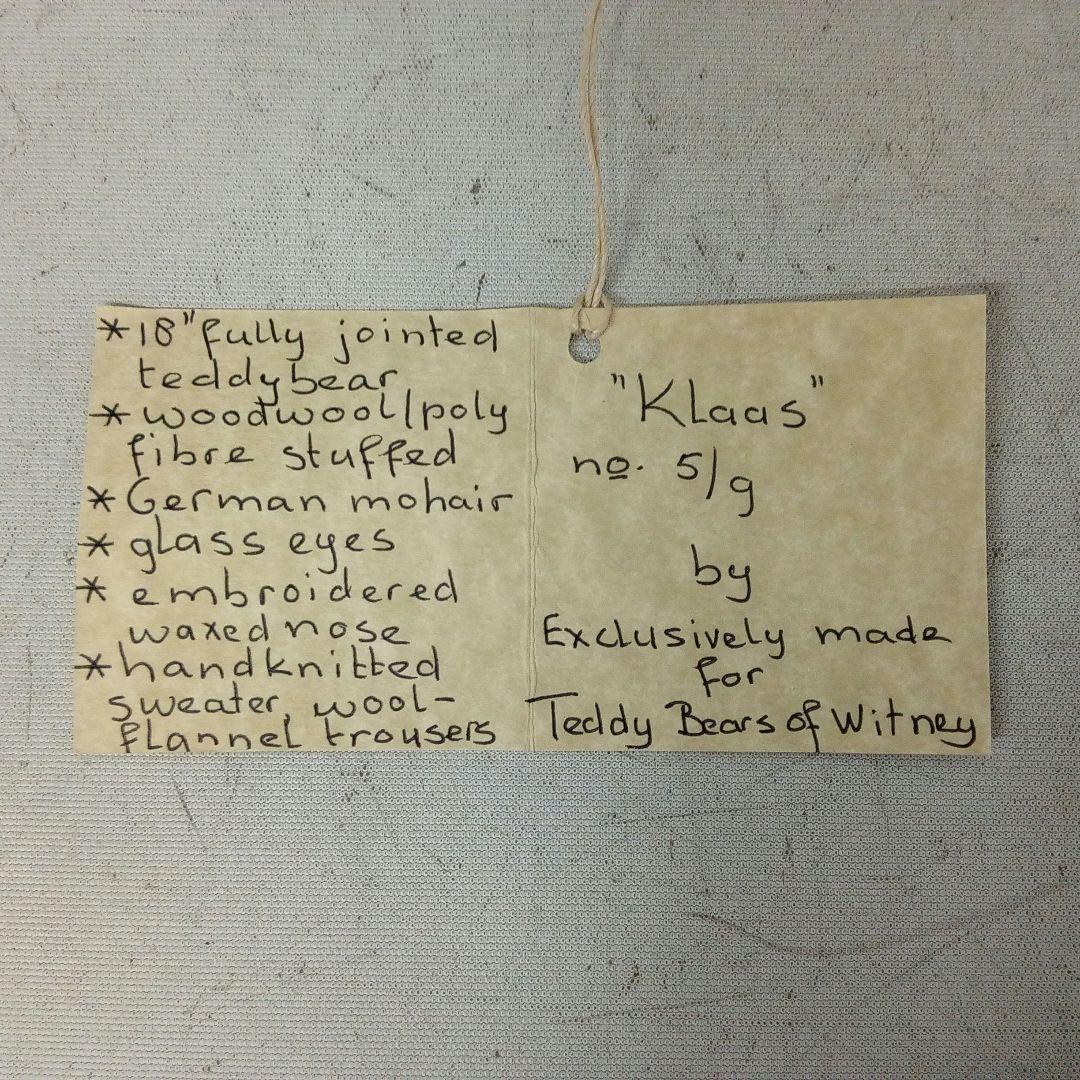 * 18" fully jointed
teddybear
* woodwool/poly
fibre stuffed
* German mohair
* glass eyes
* embroidered
waxed nose
* handknitted
sweater, wool-
flannel trousers
"Klaas"
no. 5/9
by
Exclusively made
for
Teddy Bears of Witney